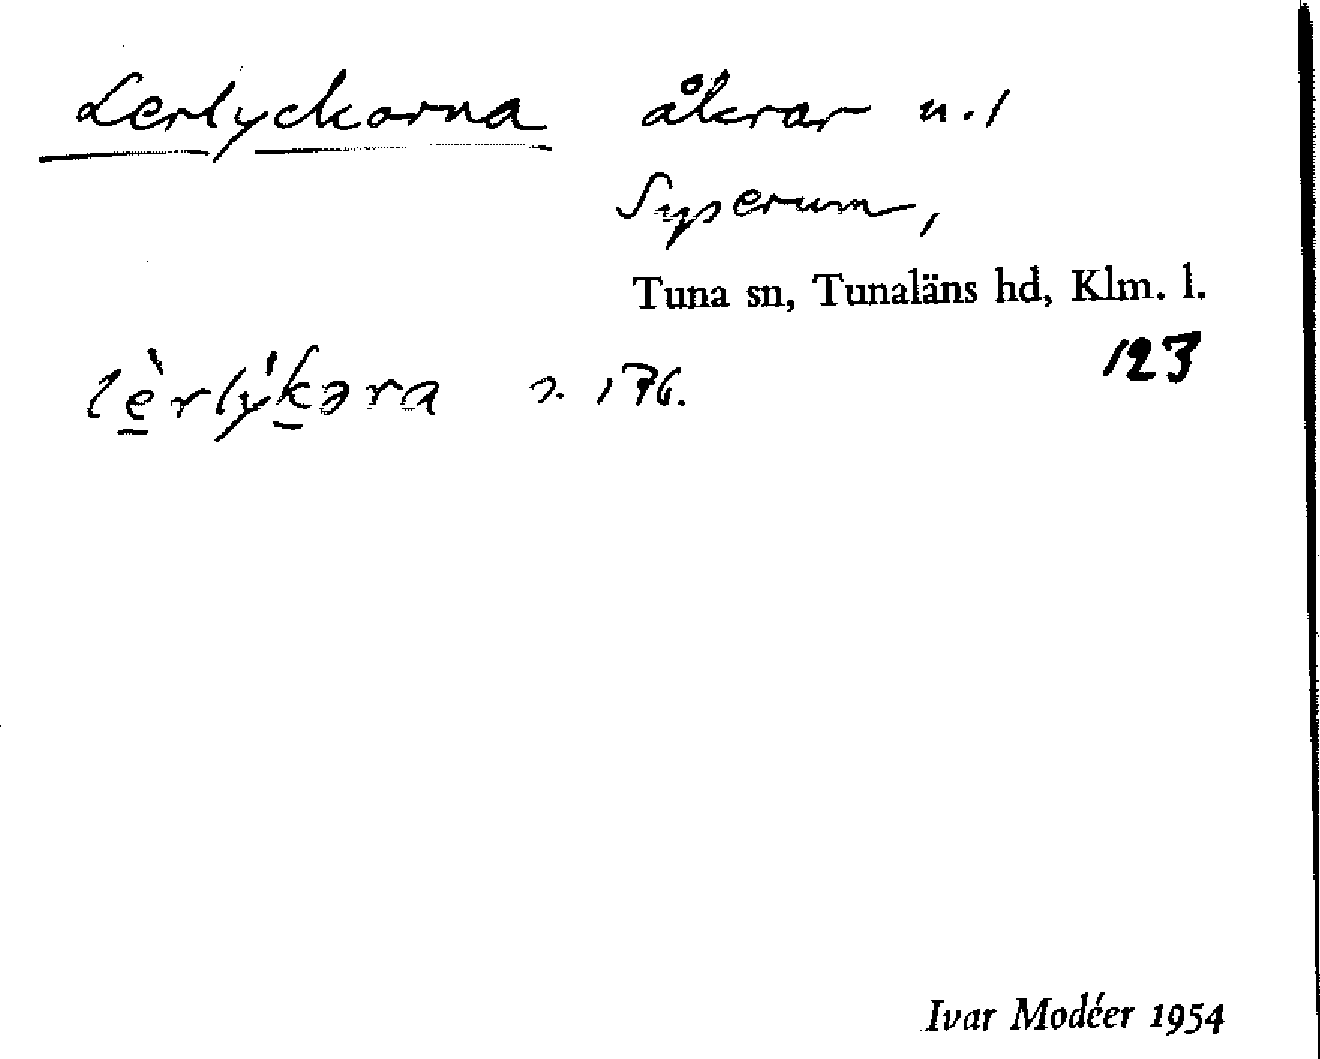 Lerlyckorna åkrar u. /
Syserum,
Tuna sn, Tunaläns hd, Klm. l.
123
lè̠rlý́k̠əra s. 176.
Ivar Modéer 1954